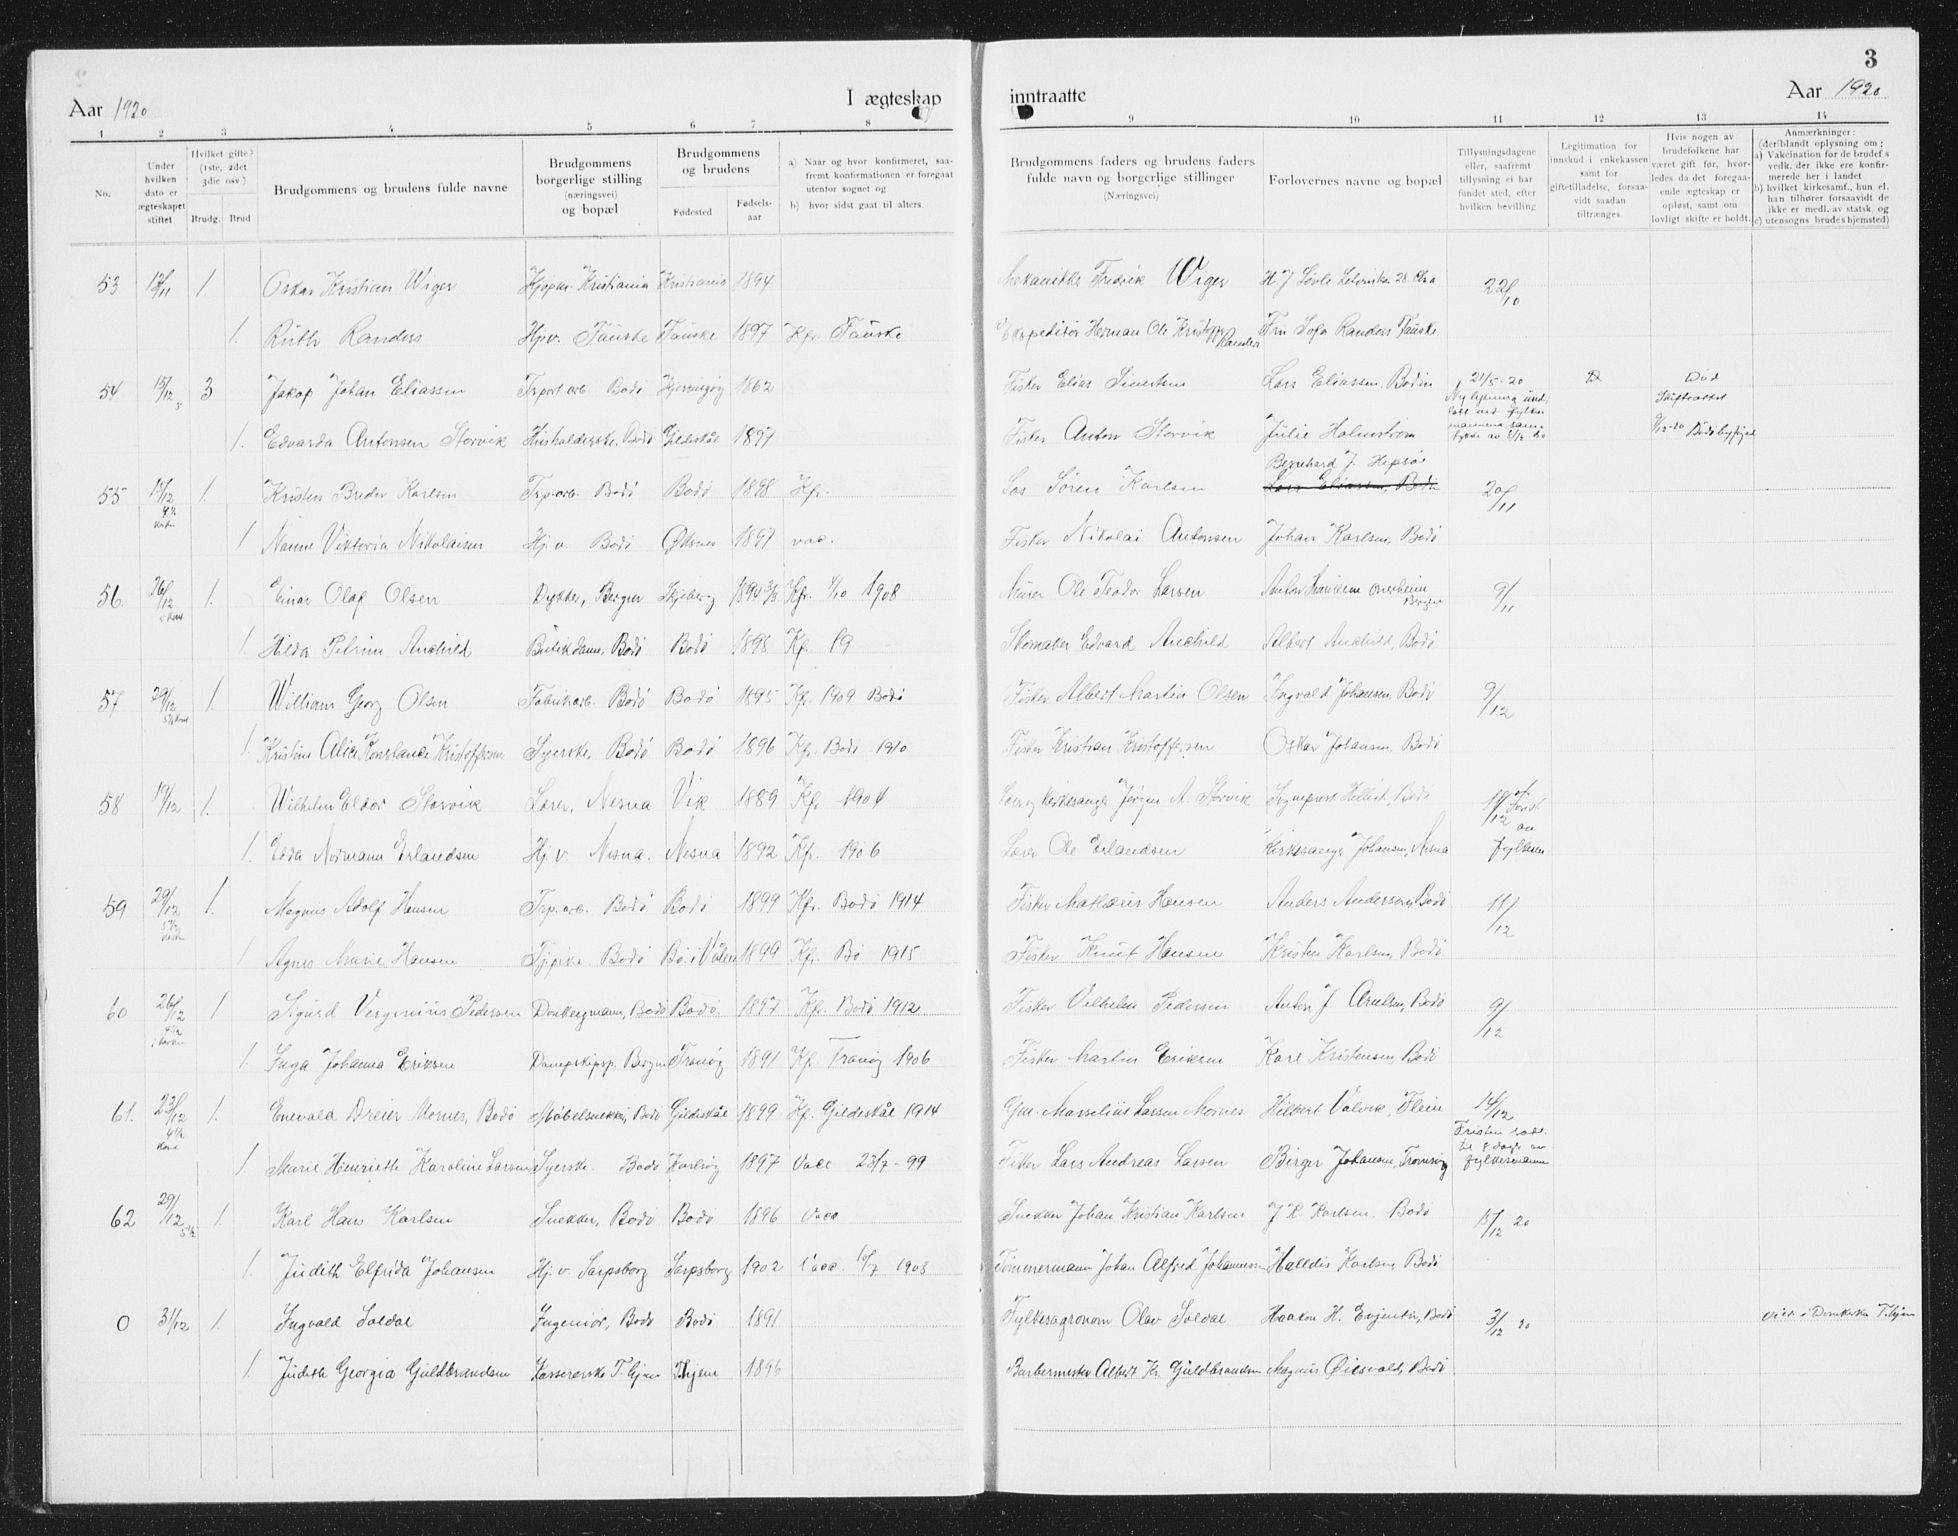 3
Aar 1920 I ægteskap inntraatte Aar 1920
1 2 3 4 5 6 7 8 9 10 11 12 13 14
No.
Under hvilken dato er ægteskapet stiftet
Hvilket gifte? (1ste, 2det 3die osv.)
Brudg. Brud
Brudgommens og brudens fulde navne
Brudgommens borgerlige stilling (næringsvei) og bopæl
Brudgommens og brudens
Fødested Fødsels-aar
a) Naar og hvor konfirmeret, saafremt konfirmationen er foregaat utenfor sognet og
b) hvor sidst gaat til alters
Brudgommens faders og brudens faders fulde navn og borgerlige stillinger (Næringsvei)
Forlovernes navne og bopæl
Tillysningsdagene eller, saafremt tillysning ei har fundet sted, efter hvilken bevilling
Legitimation for innskud i enkekassen samt for giftetilladelse, forsaavidt saadan tiltrænges
Hvis nogen av brudefolkene har været gift før, hvorledes da det foregaaende ægteskap er opløst, samt om lovligt skifte er holdt.
Anmærkninger: (deriblandt oplysning om; a) Vakcination for de brudef.s vedk. der ikke ere konfirmerede her i landet
b) hvilket kirkesamf., hun el. han tilhører forsaavidt de ikke er medl. av statsk. og
c) utensogns brudes hjemsted)
53 13/11 1 Oskar Kristian Wiger Kristiania Kristiania 1894 Mekanikker Fredrik Wiger 28 22/10
1. Ruth Randers Hjv. Fauske Fauske 1897 Kfr. Fauske Ekspeditør Herman Ole Randers Fru Sofa Randers Fauske
54 15/12 3 Jakop Johan Eliassen Trport arb. Bodø Kjerringøy 1862 Fisker Elias Sivertsen Lars Eliassen, Bodin 21/5-20 Død
1. Edvarda Antonsen Storvik Husholderske, Bodø Gildeskål 1897 Fisker Anton Storvik Julie Holmstrøm
55 15/12 1. Kristen Breder Karlsen Trp.arb. Bodø Bodø 1898 Kfr. Los Søren Karlsen Bernhard J. Lars Eliassen, Bodin 20/11
1 Nanne Viktoria Nikolaisen Hj.v. Bodø Øksnes 1897 vac. Fisker Nikolai Antonsen Johan Karlsen, Bodø
56. 26/12 1. Einar Olaf Olsen Dykker, Bergen Skjeberg 1894 Kfr. 4/10 1908 Murer Ole Teodor Larsen Bergen 9/11
1. Hilda Petrine Anchild Butikdame, Bodø Bodø 1898 Kfr. 19 Skomaker Edvard Anchild Albert Anchild, Bodø
57 29/12 1. William Georg Olsen Fabrikarb. Bodø Bodø 1895 Kf. 1909 Bodø Fisker Albert Martin Olsen Ingvald Johansen, Bodø 9/12
1. Kristine Alice Konstance Kristoffersen Syerske, Bodø Bodø 1896 Kfr. Bodø 1910 Fisker Kristian Kristoffersen Oskar Johansen, Bodø
58 19/12 1. Wilhelm Eldor Storvik Lærer, Nesna Vik 1889 Kfr. 1904 Lærer og kirkesanger Jørgen A. Storvik Sogneprest Hilbert, Bodø
1. Edda Normann Erlandsen Hj.v. Nesna. Nesna 1892 Kfr. 1906 Lærer Ole Erlandsen Kirkesanger Johansen, Nesna
59 29/12 1. Magnus Adolf Hansen Trp.arb. Bodø Bodø 1899 Kfr. Bodø 1914 Fisker Matheus Hansen Anders Anderssen, Bodø 11/12
1 Agnes Marie Hansen Tjpike Bodø Bø. i Vålen 1899 Kfr. Bø 1915 Fisker Knut Hansen Kristen Karlsen, Bodø
60 26/12 1 Sigurd Verginius Pedersen Donkeymann, Bodø Bodø. 1897 Kfr. Bodø 1912 Fisker Vilhelm Pedersen Anton J Arntsen, Bodø 9/12
1. Inga Johanna Eriksen Dampskipsp. Bergen Tranøy 1891 Kfr. Tranøy 1906 Fisker Martin Eriksen Karl Kristensen, Bodø
61. 23/12 1. Enevald Dreier Mornes, Bodø Møbelsnekker, Bodø Gildeskål 1899 Kfr. Gildeskål 1914 Gm. Marselius Larsen Mornes Hilbert Valvik, Flein 14/12
1. Marie Henriette Karoline Larsen Syerske. Bodø Karlsøy 1897 Vacc 23/7-99 Fisker Lars Andreas Larsen Birger Johansen, Tromsøy fylkesmann
62 29/12 1. Karl Hans Karlsen Snekker, Bodø Bodø 1896 Vacc Snekker Johan Kristian Karlsen J K Karlsen. Bodø 15/12 20
1. Judith Elfrida Johansen Hj.v. Sarpsborg Sarpsborg 1902 Vacc. 10/7 1908 Tømmermann Johan Alfred Johannesen Halldis Karlsen, Bodø
0 31/12 1. Ingvald Soldal Ingeniør, Bodø Bodø 1891 Fylkesagronom Olav Soldal Haakon H. Evjenth, Bodø 3/12 20 viet i Domkirken T.hjem
1. Judith Georgia Guldbrandsen Kassererske T.hjem Thjem 1896 Barbermester Albert Kr. Guldbrandsen Magnus Øiesvold, Bodø